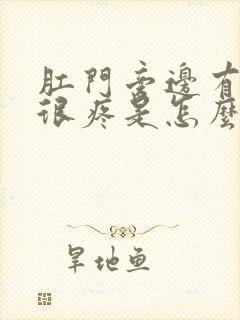 肛門旁邊有
很疼是怎麼
旱地鱼